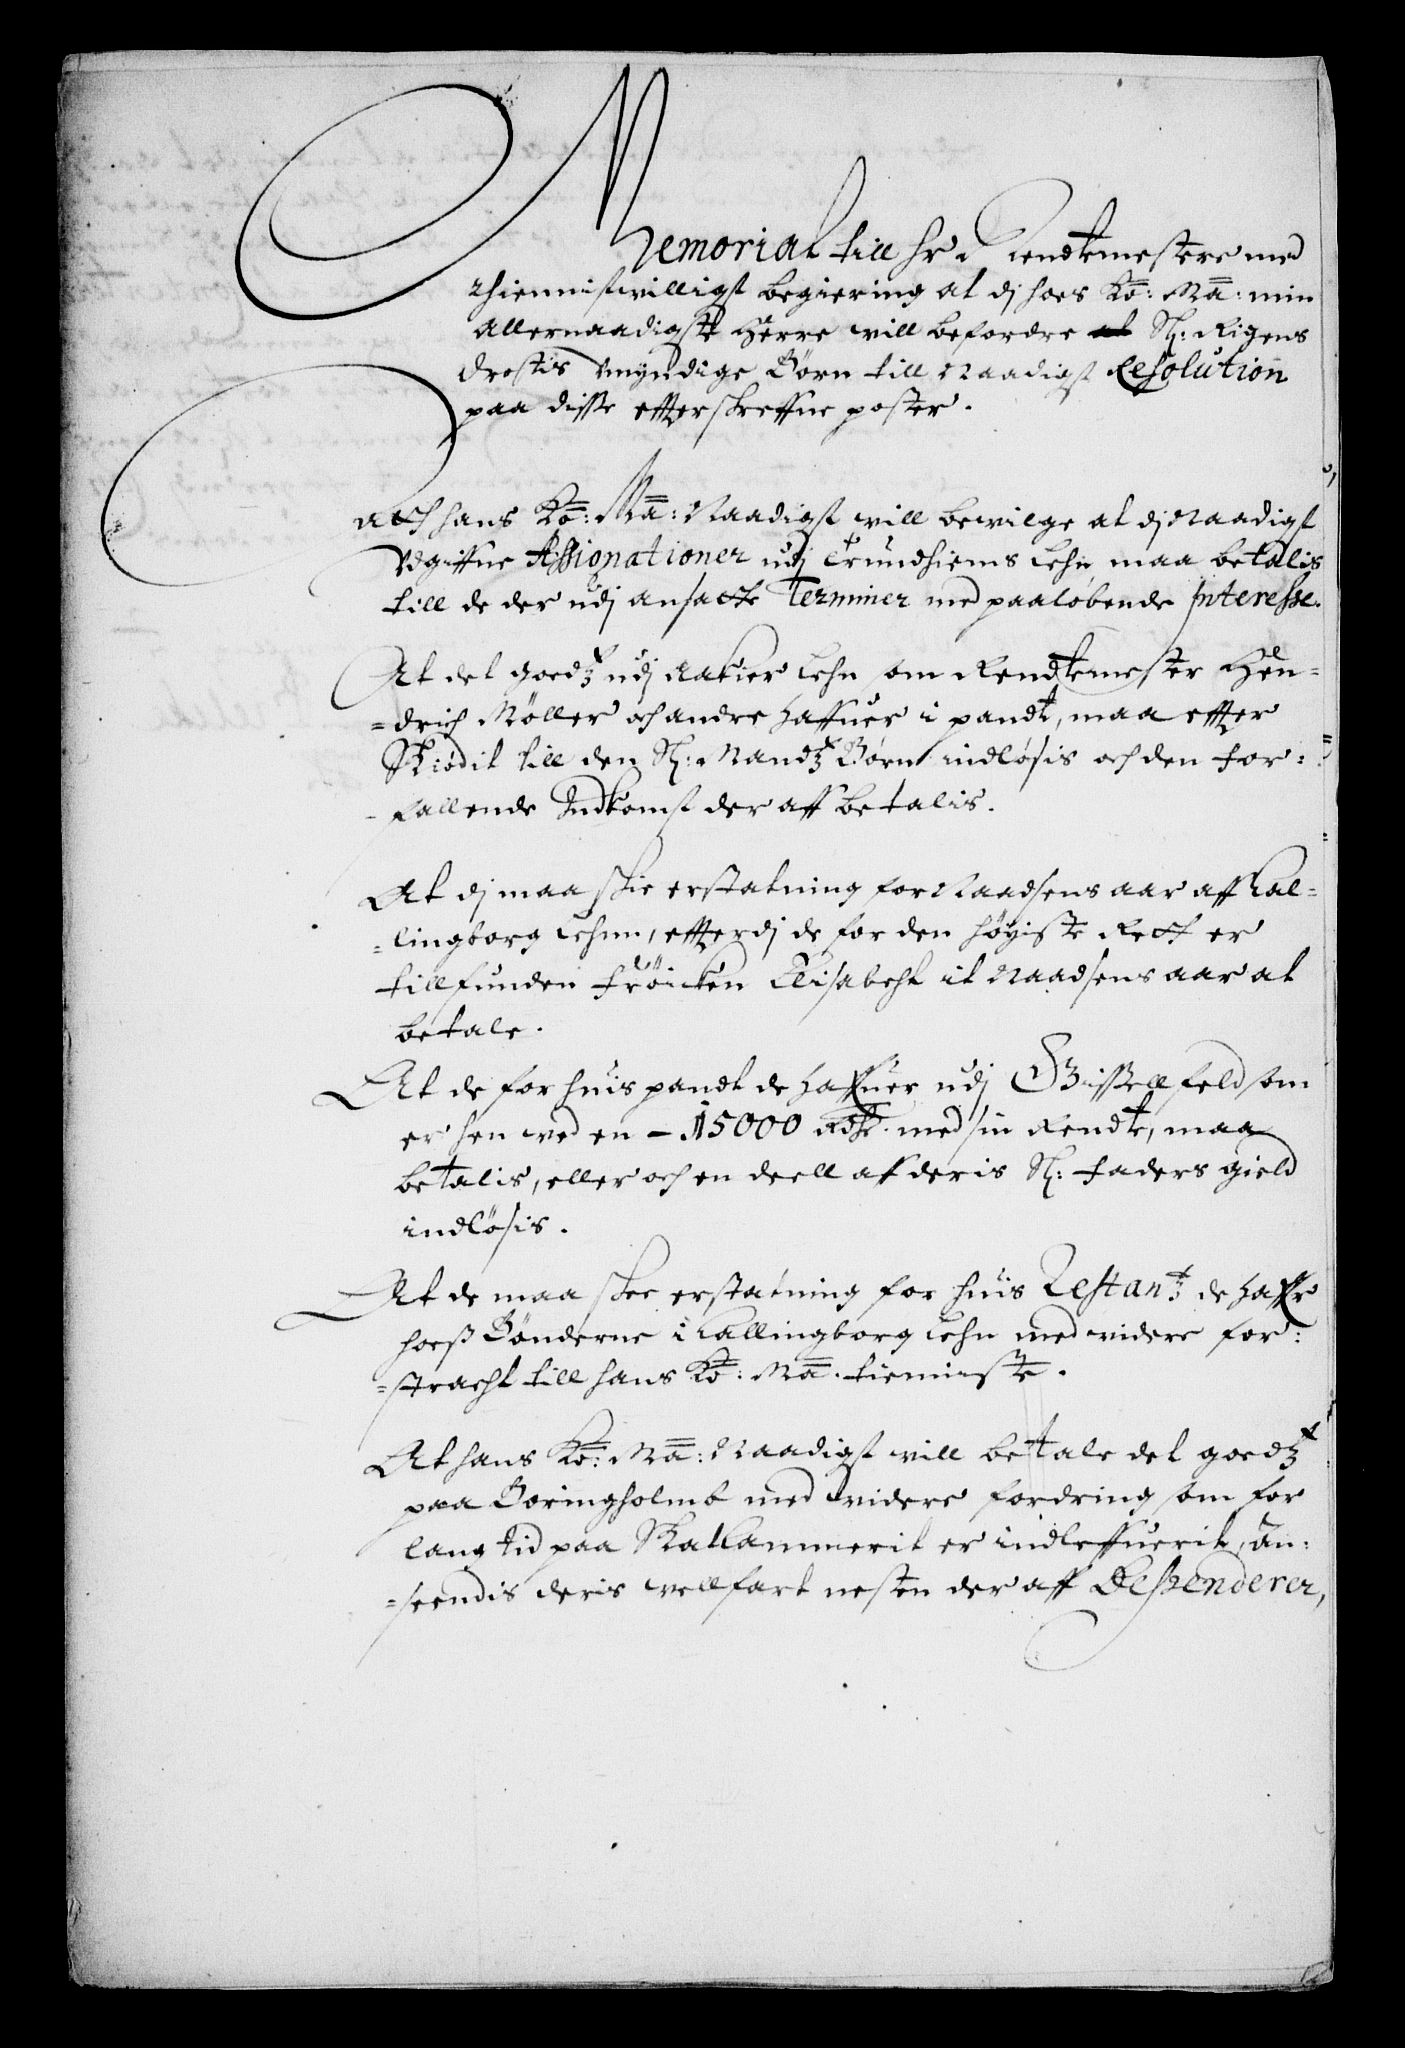 Memorial till Hr: Rendtemestere med
thiennistvilligst begiering at dj hoes Ko: Ma: min
Allernaadigste Herre will befordre Sl: Rigens
Drostis Vmyndige Børn till Naadigst Resolution
paa disse effterskreffne poster.
at hans Ko: Ma: Naadigst will bewilge at dj Naadigst
Vdgiffne Assignationer udj Trundhiems Lehn maa betalis
till de der udj ansatte Terminer med paaløbende Interesse.
At det goedz udj Aakier Lehn som Rendtemester Hen-
-drich Møller och andre haffuer i pandt, maa effter
Skiødit till den Sl: Mandz Børn indløsis och den for:
-fallende Indkomst der aff betalis.
At dj maa skie erstatning for Naadsens aar aff Kal-
-lingborg Lehnn, effterdj de for den høyiste Rett er
tillfunden frøicken Elisabeht it Naadsens aar at
betale.
At de for huis pandt de haffuer udj Gissellfeld som
er hen ved en - 15000 Rdlr. med sin Rendte, maa
betalis, eller och en deell aff deris Sl: faders gield
indløsis.
At de maa skee erstatning for huis Restantz de haffr
hoess Bønderne i Kallingborg Lehn med widere for:
-stracht till hans Ko: Ma. tienniste.
At hans Ko: Ma: Naadigst will betale det goedz
paa Boringholmb med widere fordring som for
lang tid paa Skatkammerit er indleffuerit, an:
-seendis deris wellfart nesten der aff Dependerer,